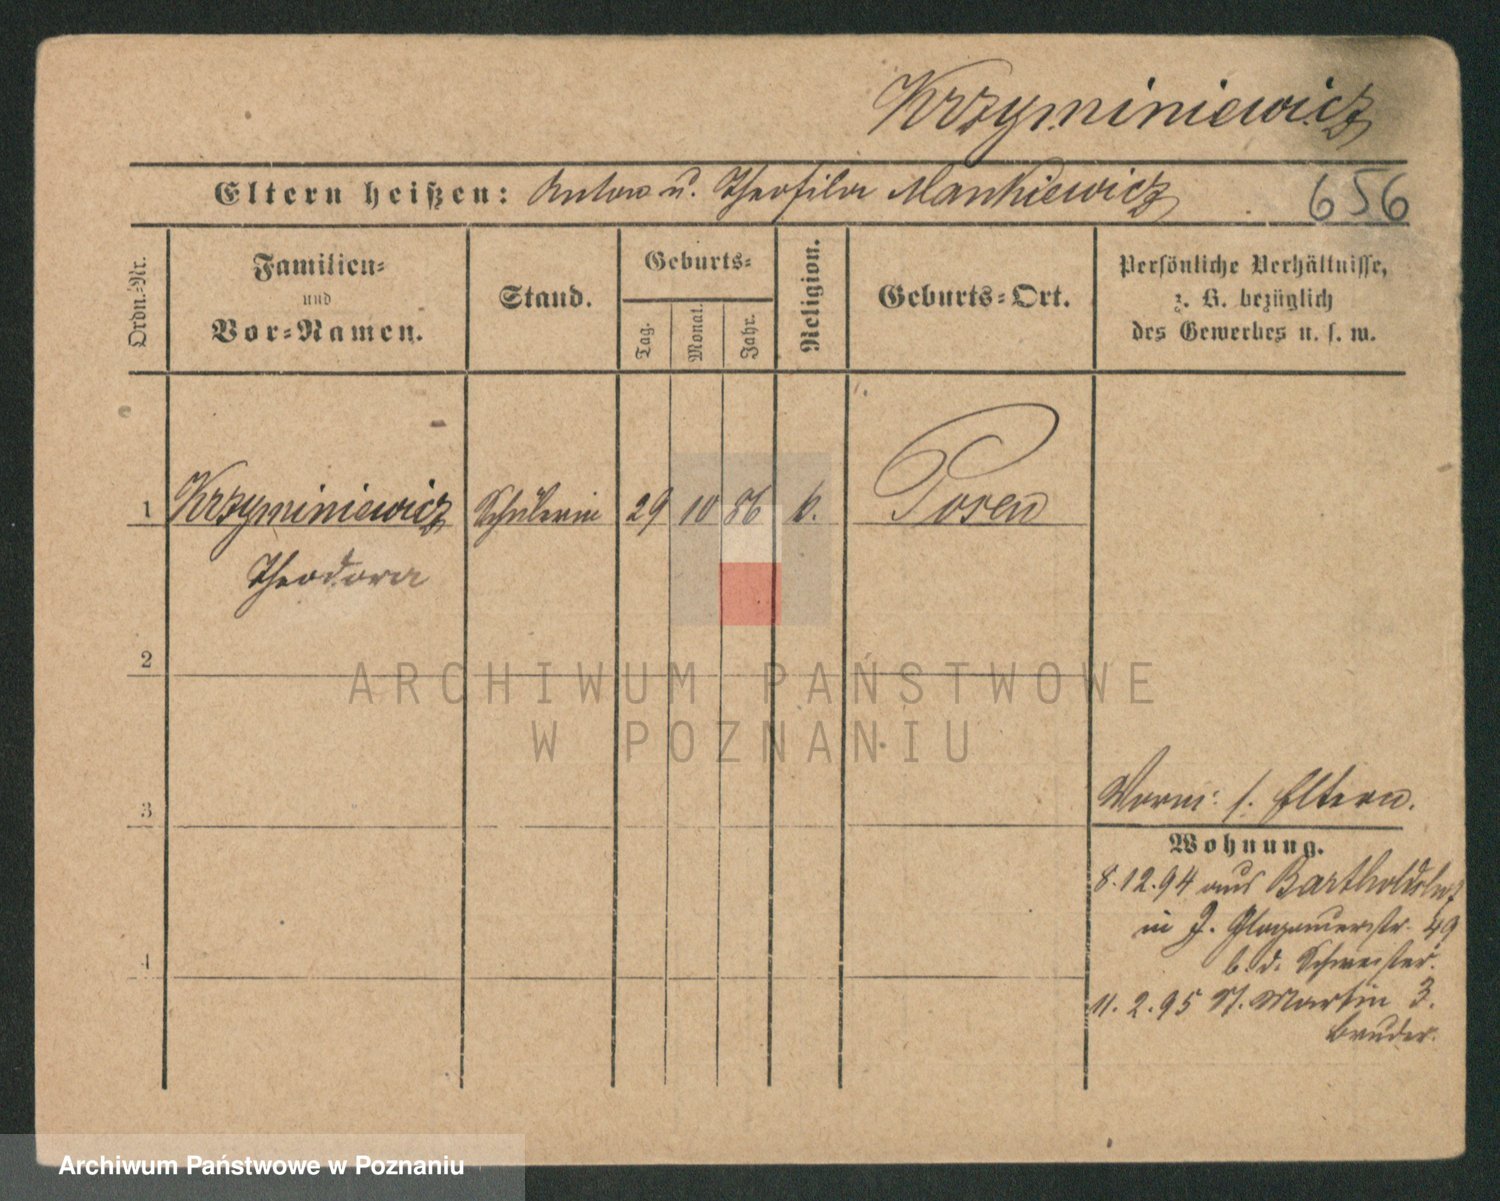 Krzyminiewicz
Eltern heißen: Anton u. Theofila Mankiewicz 656
Ordn.-Nr.
Familien-
und
Vor-Namen.
Stand.
Geburts-
Tag.
Monat.
Jahr.
Religion.
Geburts-Ort.
Persönliche Verhältnisse,
z. B. bezüglich
des Gewerbes u. s. w.
1 Krzyminiewicz Schülerin 29 10 86 k. Posen
Theodora
2
ARCHIWUM PAŃSTWOWE
W POZNANIU
3
Vorm: s. Eltern.
Wohnung.
8.12.94 aus Bartholdshof
in J. Glogauerstr. 49
b. d. Schwester.
4
11.2.95 St. Martin 3.
Bruder.
Archiwum Państwowe w Poznaniu